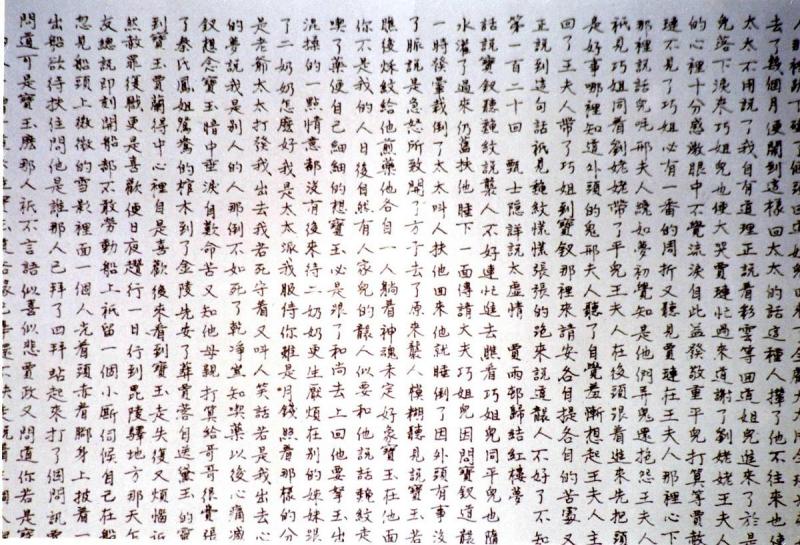 去了幾個月便鬧到這樣回太太的話這種人攆了他不往來也使
太太不用說了我自有道理正說着彩雲等回道姐兒進來了於是
免落下淚來巧姐兒也便大哭賈璉忙過來道謝了劉姥姥王夫人
的心裡十分感激眼中不覺流淚自此益發敬重平兒打算等賈
璉不見了巧姐必有一番的周折又聽見賈璉在王夫人那裡心下
那裡說話兒吒邢夫人纔如夢初覺知是他們弄鬼還抱怨王夫人
祇見巧姐同着劉姥姥帶了平兒王夫人在後頭跟着進來先把頭
是好事哪裡知道外頭的鬼邢夫人聽了自覺羞慚想起王夫人主
回了王夫人帶了巧姐到寶釵那裡來請安各自提各自的苦處又
正說到這句話祇見秋紋慌慌張張的跑來說道襲人不好了不知
第一百二十回 甄士隱詳說太虛情 賈雨邨歸結紅樓夢
話說寶釵聽秋紋說襲人不好連忙進去瞧看巧姐兒同平兒也隨
水灌了過來仍舊扶他睡下一面傳請大夫巧姐兒因問寶釵道襲
一時發暈栽倒了太太叫人扶他回來他就睡倒了因外頭有事沒
了脈說是急怒所致開了方子去了原來襲人模糊聽見說寶玉若
瞧後秋紋給他煎藥他各自一人躺着神魂未定好象寶玉在他面
你不是我的人日後自然有人家兒的襲人似要和他說話秋紋走
喫了藥便自己細細的想寶玉必是跟了和尚去上回他要拏玉出
混揉的一點情意都沒有後來待二奶奶更生厭煩在別的姊妹跟
了二奶奶怎麽好我是太太派我服侍你雖是月錢照着那樣的分
是老爺太太打發我出去我若死守着又叫人笑話若是我出去心
的夢說我是別人的人那倒不如死了乾淨豈知喫藥以後心痛減
釵想念寶玉暗中垂淚自歎命苦又知他母親打算給哥哥很費張
了秦氏鳳姐鴛鴦的棺木到了金陵先安了葬賈蓉自送黛玉的靈
到寶玉賈蘭得中心裡自是喜歡後來看到寶玉走失復又煩惱近
然赦罪復職更是喜歡便日夜趲行一日行到毘陵驛地方那天乍
友總說即刻開船都不敢勞動船上祇留一個小廝伺候自己在船
忽見船頭上微微的雪影裡面一個人光着頭赤着腳身上披着一
出船欲待扶住問他是誰那人已拜了四拜站起來打了個問訊賈
問道可是寶玉麽那人祇不言語似喜似悲賈政又問道你若是寶